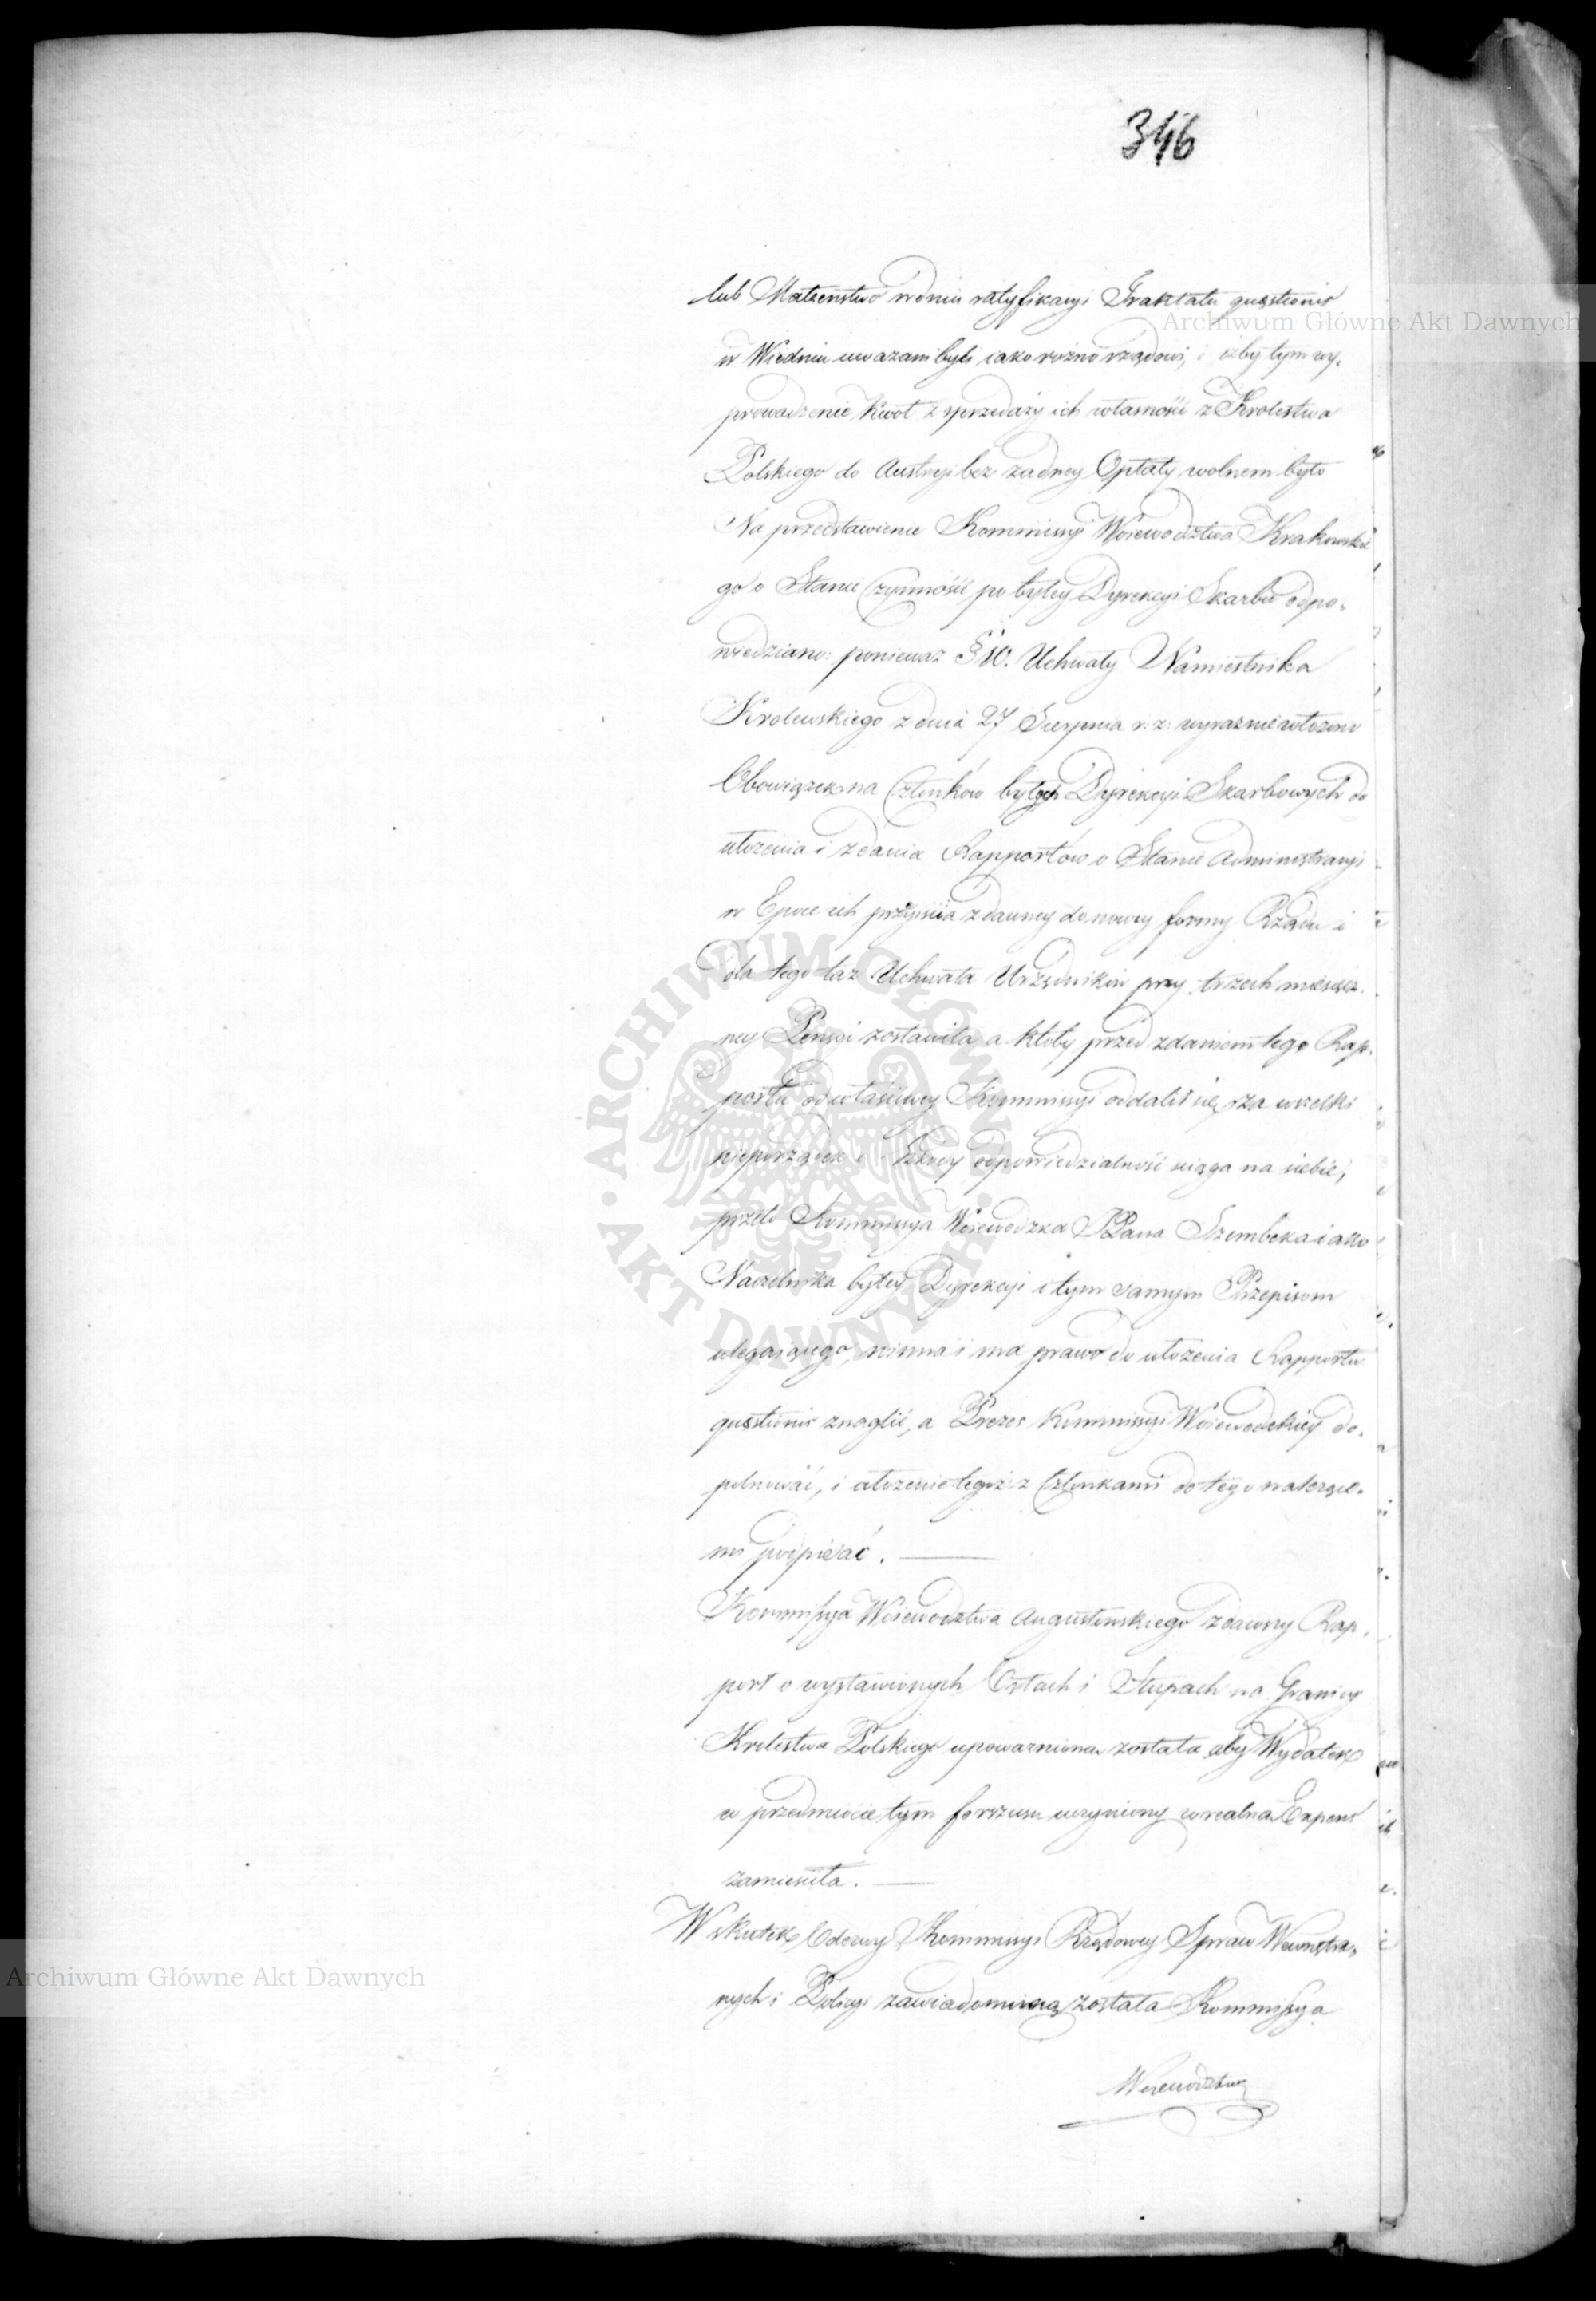 346
lub Małżenstwo w dniu ratyfikacyi Traktatu quęstionis
w Wiedniu uważani byli iako rożno rządowi, i izby tym wy-
prowadzenie kwot z sprzedaży ich własności z Krolestwa
Polskiego do Austryi bez żadney Opłaty wolnem było
Na przedstawienie Kommissyi Woiewodztwa Krakowskie
go o Stanie Czynności po byłey Dyrekcyi Skarbu odpo-
wiedziano: ponieważ § 10. Uchwały Namiestnika
Krolewskiego z dnia 27 Sierpnia r: z: wyraznie włożono
Obowiązek na Członków byłych Dyrekcyi Skarbowych do
ułożenia i zdania Rapportów o Stanie Administracyi
w Epoce ich przyiscia z dawney do nowey formy Rządu i
dla tego taż Uchwała Urzędników przy trzech miesięcz-
ney Pensyi zostawiła a ktoby przed zdaniem tego Rap-
portu od właściwey Kommissyi oddalił się za wszelki
nieporządek i Szkody odpowiedzialność sciąga na siebie,
przeto Kommissya Woiewodzka JPana Szembeka iako
Naczelnika byłey Dyrekcyi i tym samym Przepisom
ulegaiącego, winna i ma prawo do ułożenia Rapportu
quęstionis znaglić, a Prezes Kommissyi Woiewodzkiey do-
pilnować, i ułożenie tegoż z Członkami do tego należące-
mi podpisać.
Kommissya Woiewodztwa Augustowskiego zdawszy Rap-
port o wystawionych Orłach i Słupach na Granicy
Krolestwa Polskiego upoważniona została aby Wydatek
w przedmiocie tym forszusu uczyniony w realna Expens
zamieniła.
W skutek Odezwy Kommissyi Rządowey Spraw Wewnętrz-
nych i Policyi zawiadomioną została Kommissya
Woiewodztwa
Archiwum Główne Akt Dawnych
ARCHIWUM GŁÓWNE AKT DAWNYCH
Archiwum Główne Akt Dawnych